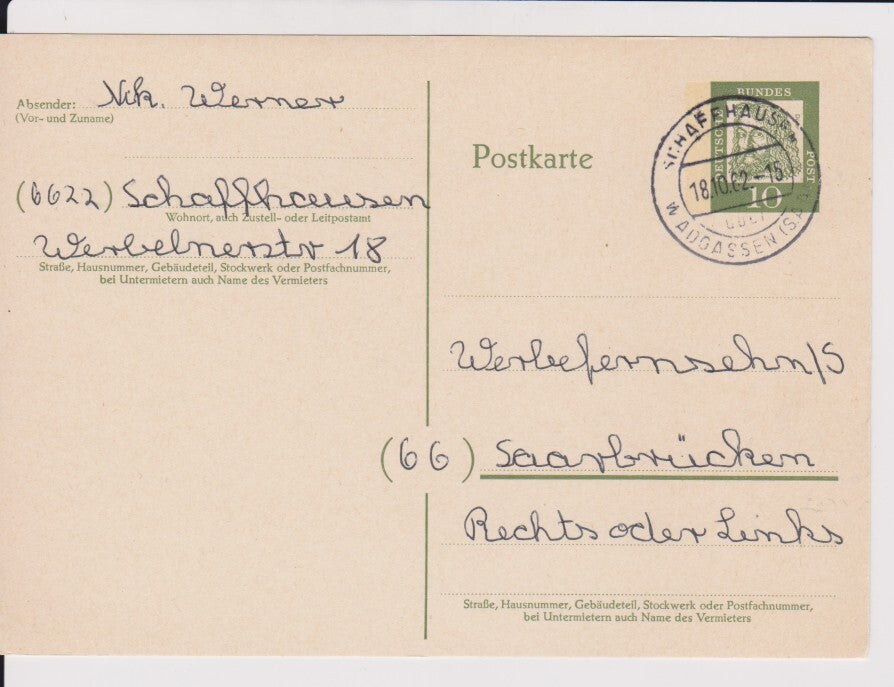 Absender: Nik. Werner
(Vor- und Zuname)
(6622) Schaffhausen
Wohnort, auch Zustell- oder Leitpostamt
Werbelnerstr 18
Straße, Hausnummer, Gebäudeteil, Stockwerk oder Postfachnummer,
bei Untermietern auch Name des Vermieters
Postkarte
DEUTSCHE
BUNDES
POST
10
SCHAFFHAUSEN
18.10.62.-15
WADGASSEN (SAAR)
Werbefernsehn/S
(66) Saarbrücken
Rechts oder Links
Straße, Hausnummer, Gebäudeteil, Stockwerk oder Postfachnummer,
bei Untermietern auch Name des Vermieters